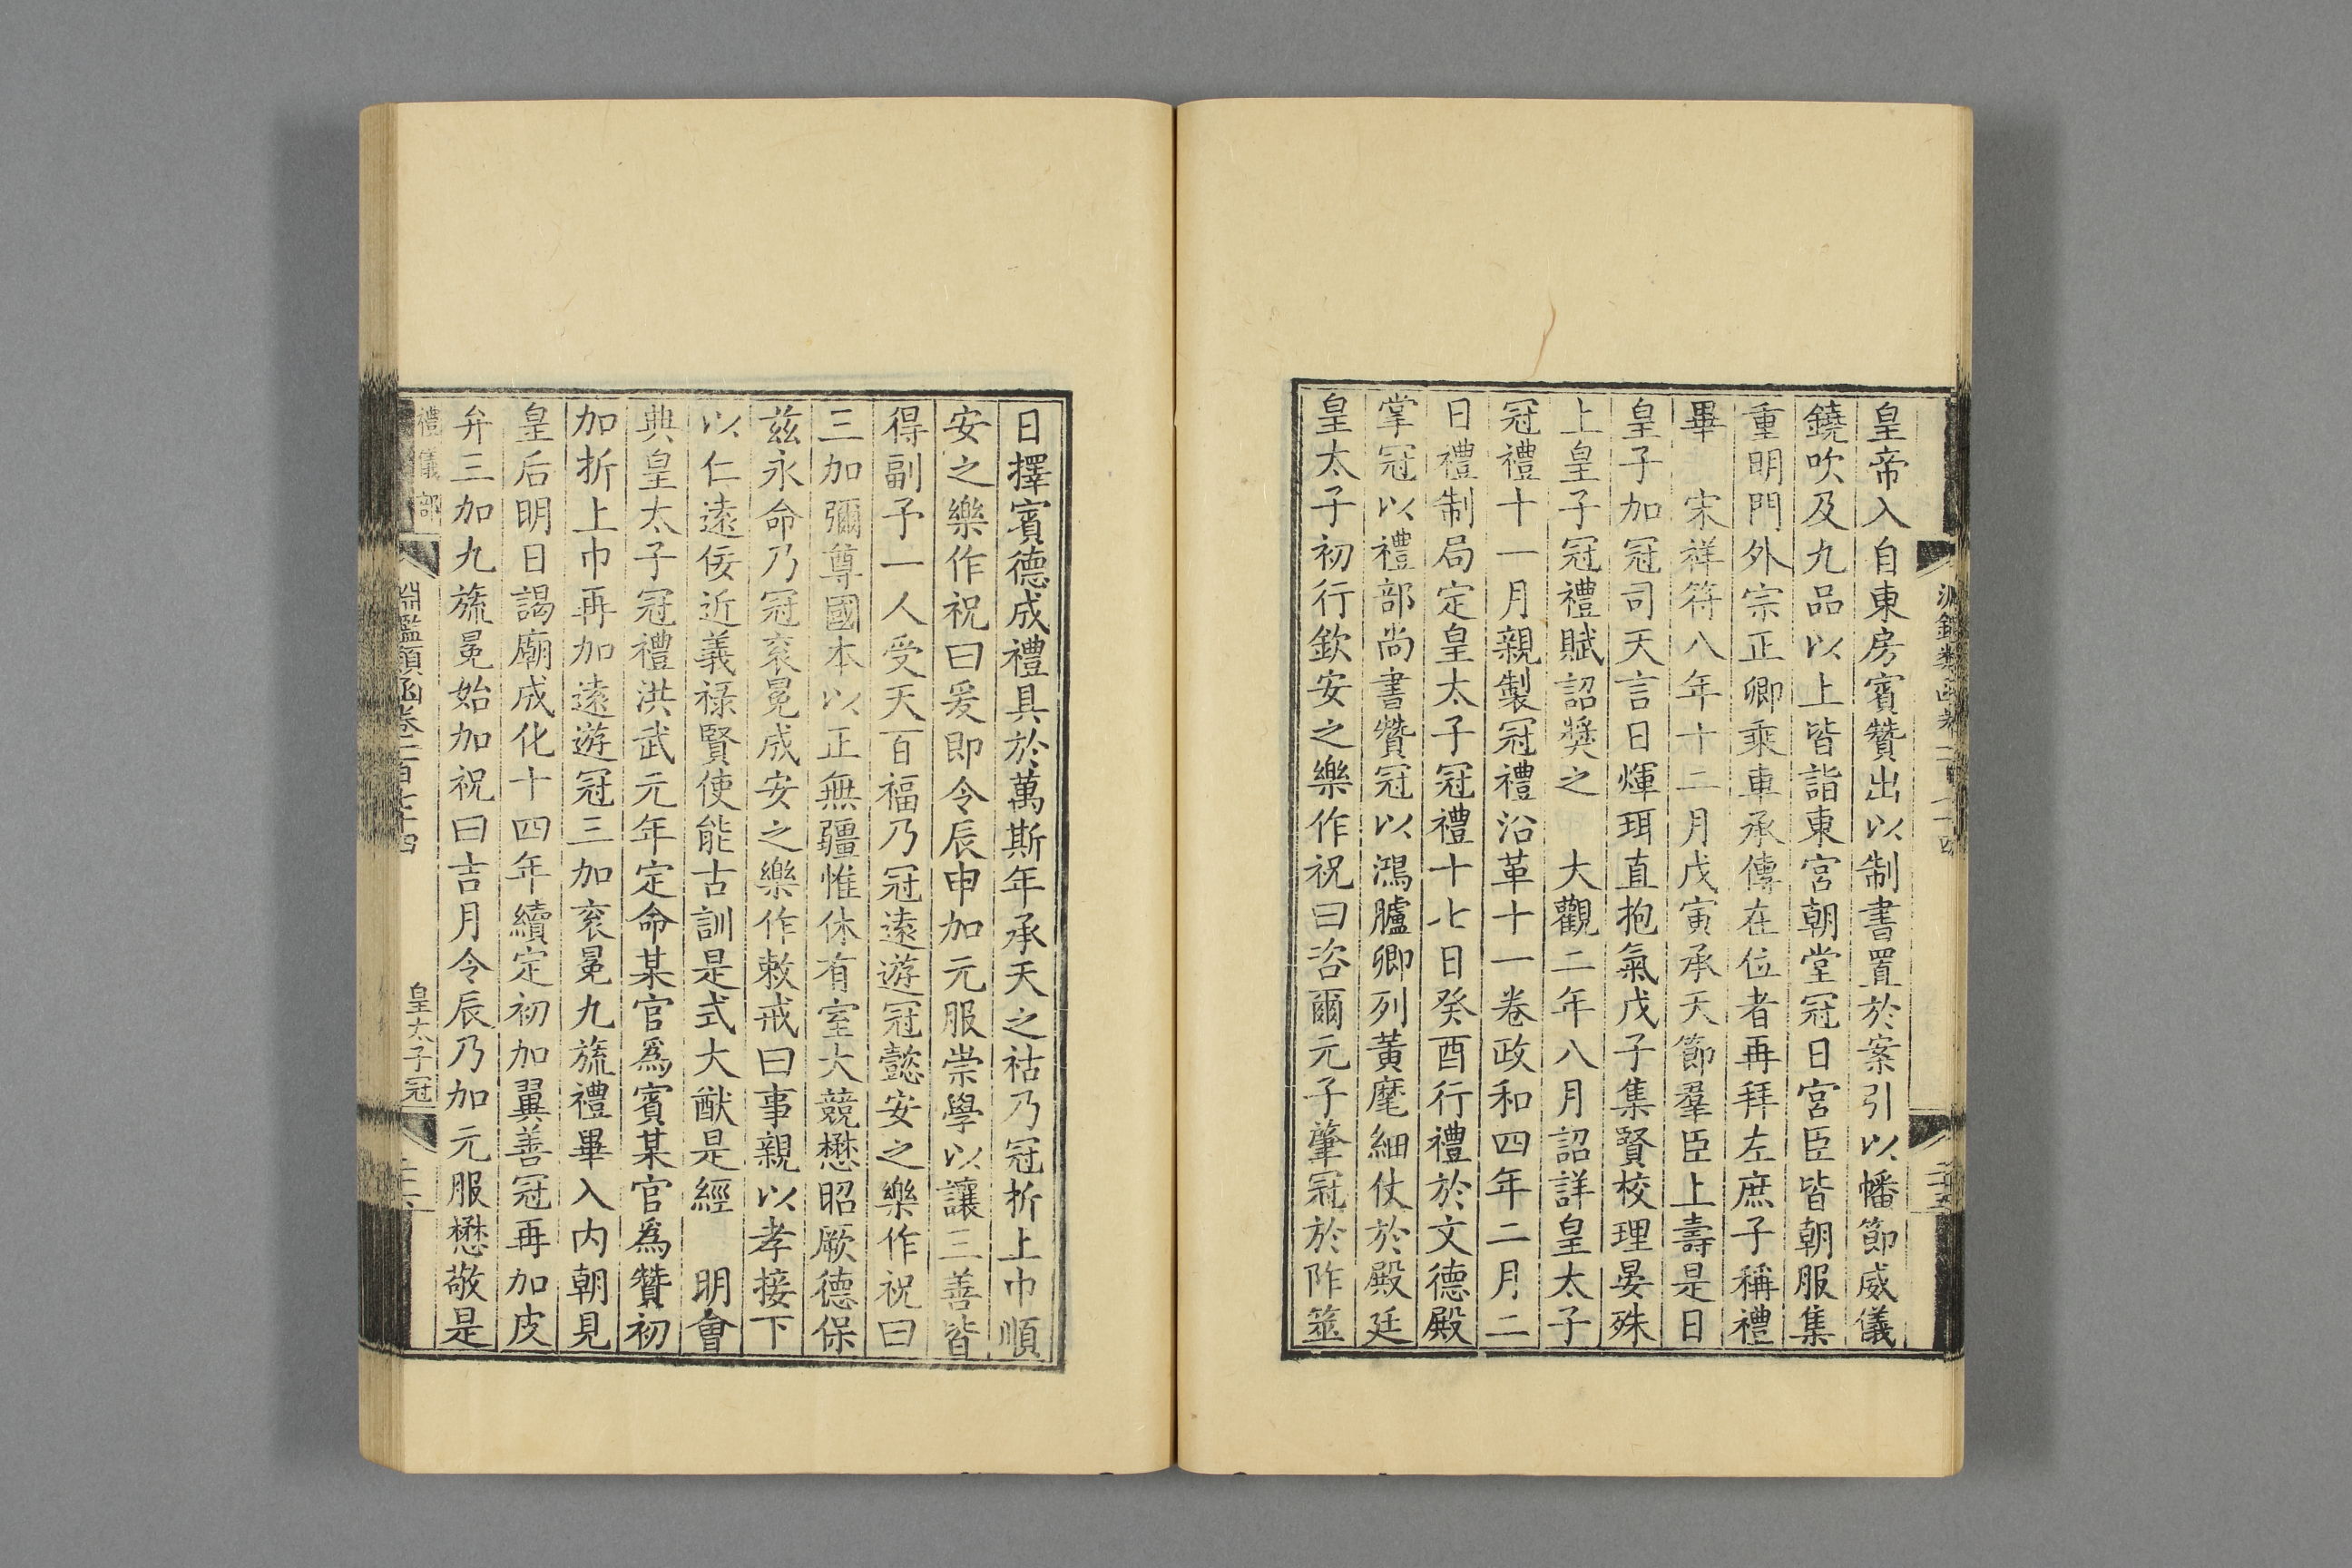 皇帝入自東房賓贊出以制書置於案引以幡節威儀
鐃吹及九品以上皆詣東宮朝堂冠日宮臣皆朝服集
重明門外宗正卿乘車承傳在位者再拜左庶子稱禮
畢　宋祥符八年十二月戊寅承天節羣臣上壽是日
皇子加冠司天言日煇珥直抱氣戊子集賢校理晏殊
上皇子冠禮賦詔奬之　大觀二年八月詔詳皇太子
冠禮十一月親製冠禮沿革十一卷政和四年二月二
日禮制局定皇太子冠禮十七日癸酉行禮於文德殿
掌冠以禮部尚書贊冠以鴻臚卿列黃麾細仗於殿廷
皇太子初行欽安之樂作祝曰咨爾元子肇冠於阼筮
日擇賓德成禮具於萬斯年承天之祜乃冠折上巾順
安之樂作祝曰爰即令辰申加元服崇學以讓三善皆
得副予一人受天百福乃冠遠遊冠懿安之樂作祝曰
三加彌尊國本以正無疆惟休有室大競懋昭厥德保
茲永命乃冠衮冕成安之樂作敕戒曰事親以孝接下
以仁遠佞近義祿賢使能古訓是式大猷是經　明會
典皇太子冠禮洪武元年定命某官爲賓某官爲贊初
加折上巾再加遠遊冠三加衮冕九旒禮畢入内朝見
皇后明日謁廟成化十四年續定初加翼善冠再加皮
弁三加九旒冕始加祝曰吉月令辰乃加元服懋敬是
禮儀部
淵鑑類函卷二百七十四
皇太子冠